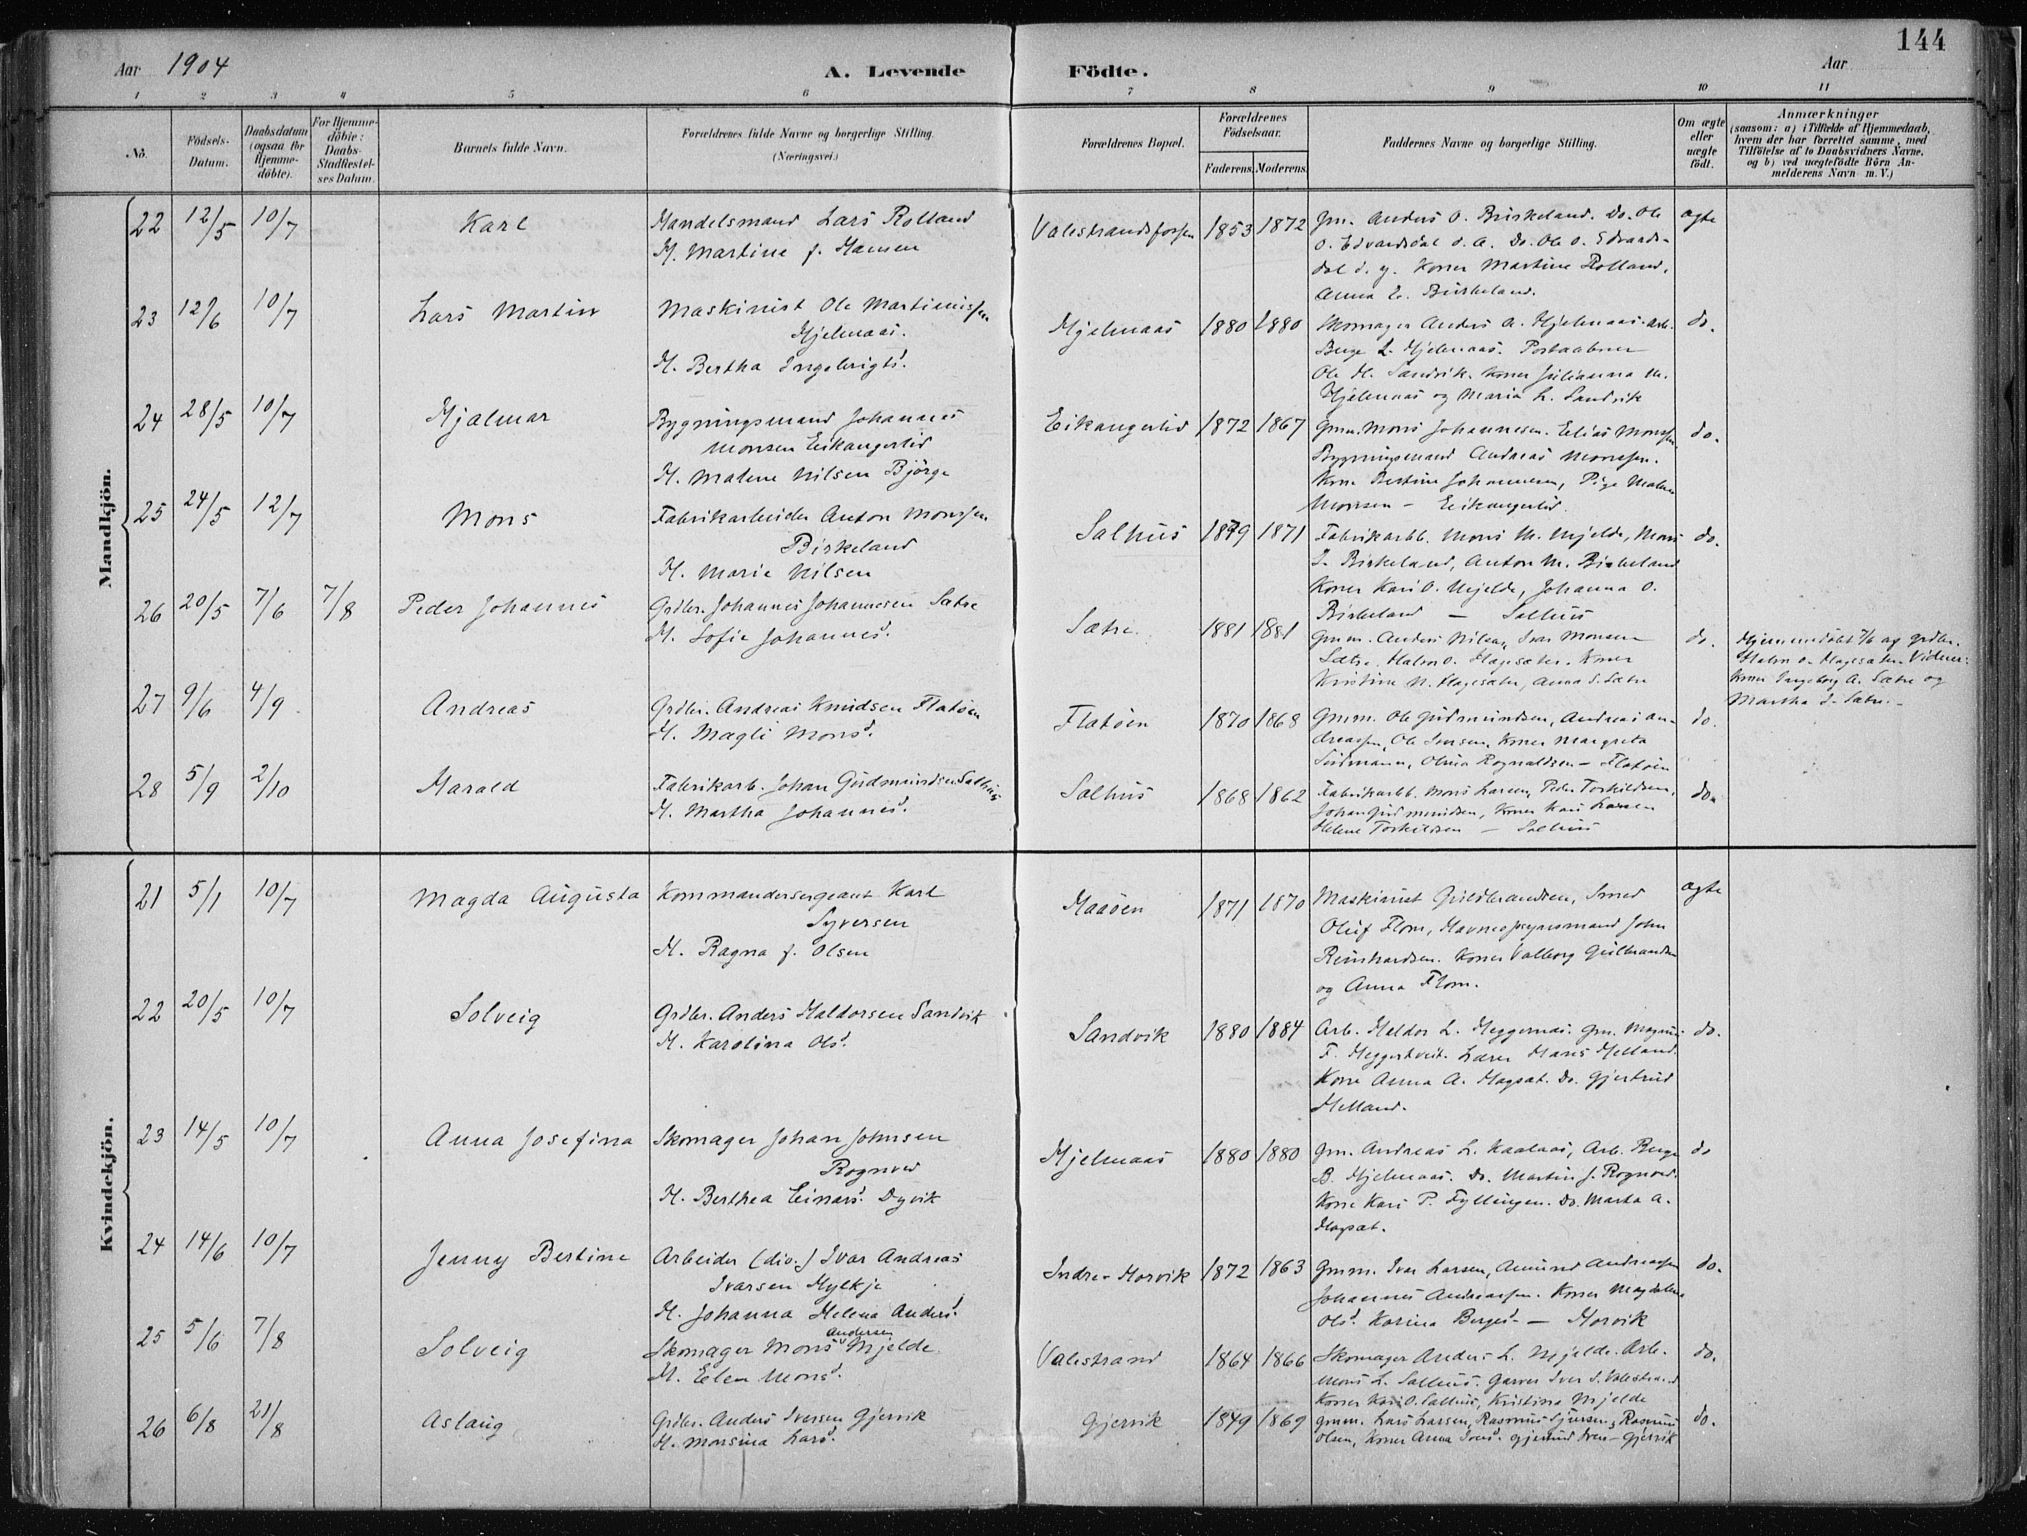 144
Aar 1904
A. Levende Födte.
Aar
1 2 3 4 5 6 7 8 9 10 11
No.
Födsels-Datum.
Daabsdatum (ogsaa for Hjemme-döbte).
For Hjemme-döbte: Daabs-Stadfæstel-ses Datum.
Barnets fulde Navn.
Forældrenes fulde Navne og borgerlige Stilling.
(Næringsvei.)
Forældrenes Bopæl.
Forældrenes Födselsaar.
Faderens. Moderens.
Faddernes Navne og borgerlige Stilling.
Om ægte eller uægte født.
Anmærkninger
(saasom: a) i Tilfælde af Hjemmedaab,
hvem der har forrettet samme, med
Tilföielse af to Daabsvidners Navne,
og b) ved uægtefödte Börn An-
melderens Navn m. V.)
Mandkjön.
22 12/5 10/7 Karl Handelsmand Lars Rolland
H. Martine f. Hansen
Valestrandsfossen 1853 1872
Gm. Anders O. Birkeland. Do. Ole
O. Edvardsdal d. æ. Do. Ole O. Edvards-
dal d. y. Koner Martine Rolland,
Anna E. Birkeland.
ægte
23 12/6 10/7 Lars Martin Maskinist Ole Martinussen
Hjelmaas.
H. Bertha Ingebrigtsd.
Hjelmaas 1880 1880
Skomager Anders A. Hjelmaas. Arb.
Berge L. Hjelmaas. Postaabner
Ole H. Sandvik. Koner Julianna M.
Hjelmaas og Maria L. Sandvik
do.
24 28/5 10/7 Hjalmar Bygningsmand Johannes
Monsen Eikangerlid
H. Malene Nilsen Björge
Eikangerlid 1872 1867
Gmm. Mons Johannesen. Elias Monssen
Bygningsmand Andreas Monssen.
Kone Bertine Johannesen, Pige Malene
Monsen – Eikangerlid.
do.
25 24/5 12/7 Mons Fabrikarbeider Anton Monssen
Birkeland
H. Marie Nilsen
Salhus 1879 1871
Fabrikarbb. Mons M. Mjelde, Mons
I. Birkeland, Anton M. Birkeland
Koner Kari O. Mjelde, Johanna O.
Birkeland – Salhus
do.
26 20/5 7/6 7/8 Peder Johannes Grdbr. Johannes Johannesen Sætre
H. Sofie Johannesd.
Sætre 1881 1881
Gmm. Anders Nilsen, Ivar Monsen
Sætre. Halvo. Hagesæter. Koner
Kristine N. Hagesæter, Anna S. Sætre
do.
Hjemmedöbt 7/6 ag grdbr.
Halvo. Hagesæter. Vidner:
Koner Ingeborg A. Sætre og
Martha I. Sætre.
27 9/6 4/9 Andreas Grdbr. Andreas Knudsen Flatöen
H. Magli Monsd.
Flatöen 1870 1868
Gmm. Ole Gudmundsen, Andreas An-
dreassen, Ole Iversen, Koner Margreta
Olina Rognaldsen – Flatöen
do.
28 5/9 2/10 Harald Fabrikarb. Johan Gudmundsen Salhus
H. Martha Johannesd.
Salhus 1868 1862
Fabrikarbb. Mons Larsen, Peder Torkildsen,
Johan Gudmundsen, Koner Kari Larsen
Helene Torkildsen – Salhus
do.
Kvindekjön.
21 5/1 10/7 Magda Augusta Kommandersergeant Karl
Syversen
H. Ragna f. Olsen
Haaöen 1871 1870
Maskinist Guldbrandsen, Smed
Oluf Flom, Havneopsynsmand John
Reinhardsen. Koner Valborg Gulbrandsen
og Anna Flom.
ægte
22 20/5 10/7 Solveig Grdbr. Anders Haldorsen Sandvik
H. Karolina Olsd.
Sandvik 1880 1884
Arb. Haldor L. Heggernæs. Gm. Magnus
F. Heggertveit. Lærer Hans Helland.
Kone Anna A. Hagsæt. Do. Gjertrud
Helland.
do.
23 14/5 10/7 Anna Josefina Skomager Johan Johnsen
Rognved
H. Berthea Einarsd. Dyvik
Hjelmaas 1880 1880
Gm. Andreas L. Kaalaas, Arb. Berge
B. Hjelmaas. Do. Martin J. Rognved.
Kone Kari P. Fyllingen. Do. Marta A.
Hagsæt.
do
24 14/6 10/7 Jenny Bertine Arbeider (div.) Ivar Andreas
Ivarsen Hylkje
H. Johanna Helena Andersd.
Indre-Horvik 1872 1863
Gmm. Ivar Larsen, Amund Andreassen
Johannes Andreassen. Koner Magdalena
Olsd. Karina Bergesd. – Horvik
do.
25 5/6 7/8 Solveig Skomager Mons Andersen Mjelde
H. Elen Monsd.
Valestrand 1864 1866
Skomager Anders L. Mjelde. Arb.
Mons L. Salhus. Garver Iver S. Valestrand
Koner Kari O. Salhus, Kristina Mjelde
do.
26 6/8 21/8 Aslaug Grdbr. Anders Iversen Gjervik
H. Monsina Larsd.
Gjervik 1849 1869
Gmm. Lars Larsen, Rasmus Sjursen, Rasmus
Olsen, Koner Anna Iversd. Gjertrud Ivers – Gjervik
do.